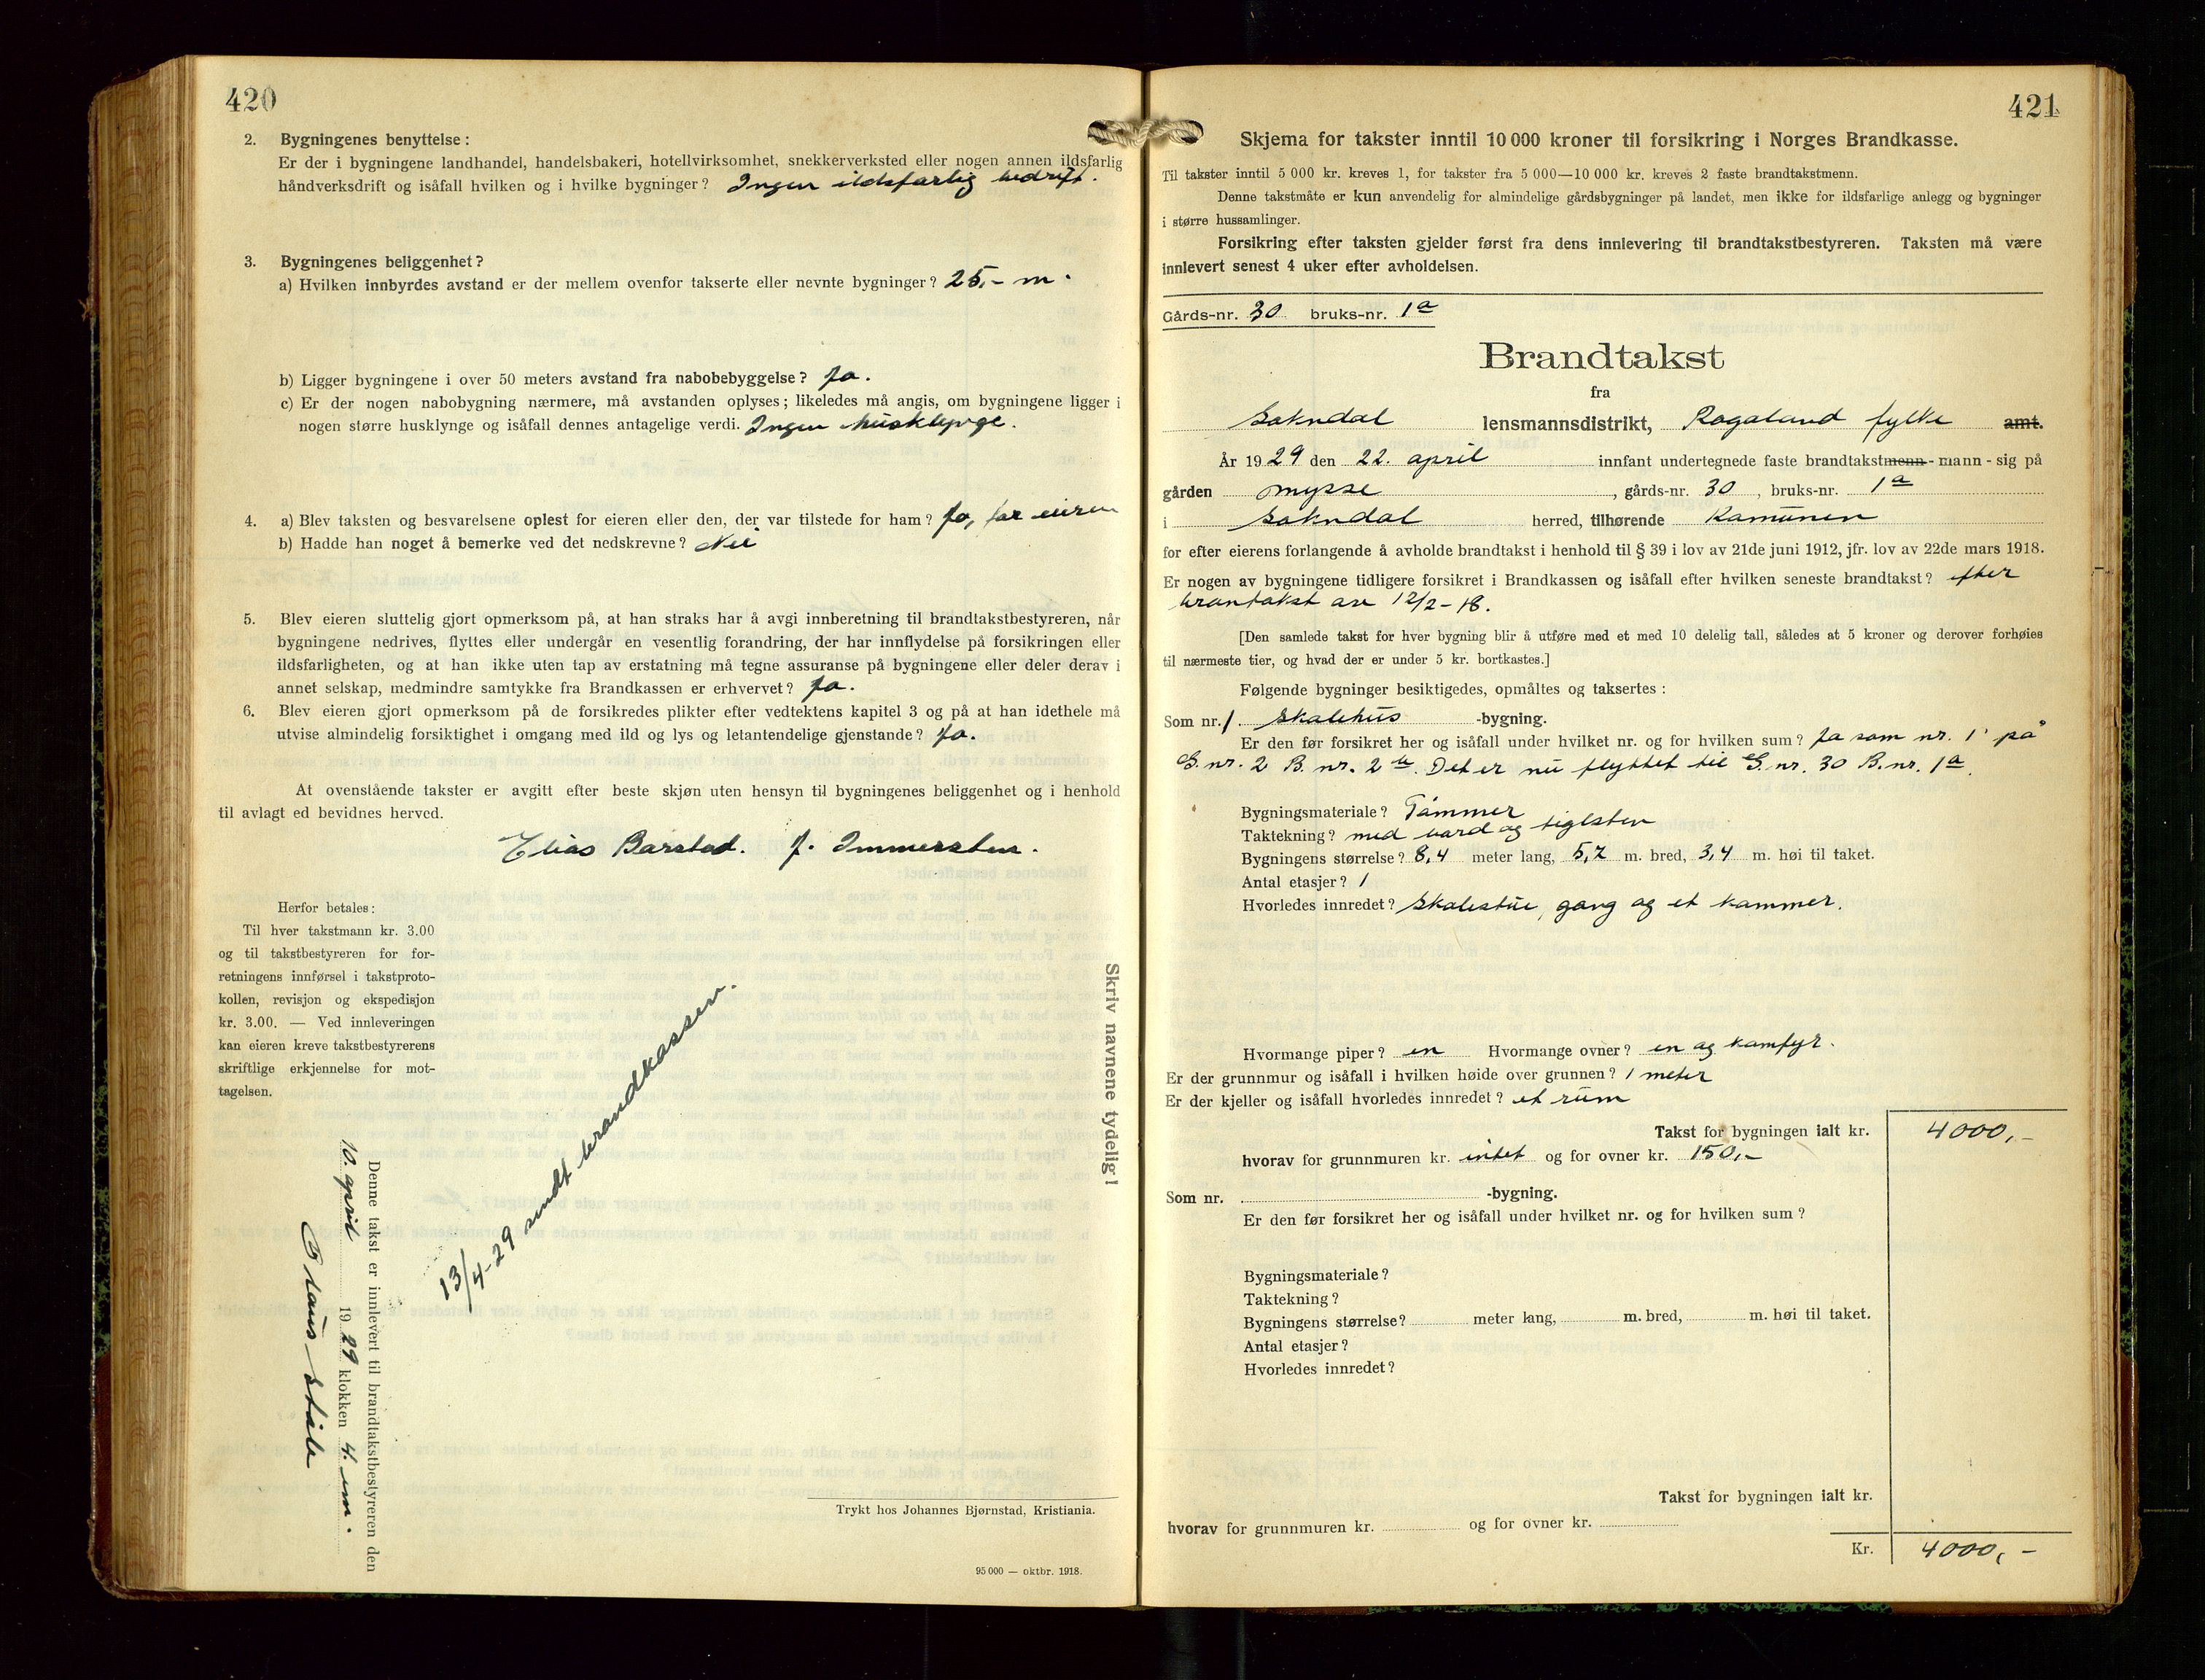 420
2. Bygningenes benyttelse:
Er der i bygningene landhandel, handelsbakeri, hotellvirksomhet, snekkerverksted eller nogen annen ildsfarlig
håndverksdrift og isåfall hvilken og i hvilke bygninger? Ingen ildsfarlig bedrift.
3. Bygningenes beliggenhet?
a) Hvilken innbyrdes avstand er der mellem ovenfor takserte eller nevnte bygninger? 25,- m.
b) Ligger bygningene i over 50 meters avstand fra nabobebyggelse? Ja.
c) Er der nogen nabobygning nærmere, må avstanden oplyses; likeledes må angis, om bygningene ligger i
nogen større husklynge og isåfall dennes antagelige verdi. Ingen husklynge.
4. a) Blev taksten og besvarelsene oplest for eieren eller den, der var tilstede for ham? Ja, for eieren
b) Hadde han noget å bemerke ved det nedskrevne? Nei
5. Blev eieren sluttelig gjort opmerksom på, at han straks har å avgi innberetning til brandtakstbestyreren, når
bygningene nedrives, flyttes eller undergår en vesentlig forandring, der har innflydelse på forsikringen eller
ildsfarligheten, og at han ikke uten tap av erstatning må tegne assuranse på bygningene eller deler derav i
annet selskap, medmindre samtykke fra Brandkassen er erhvervet? Ja.
6. Blev eieren gjort opmerksom på de forsikredes plikter efter vedtektens kapitel 3 og på at han idethele må
utvise almindelig forsiktighet i omgang med ild og lys og letantendelige gjenstande? Ja.
At ovenstående takster er avgitt efter beste skjøn uten hensyn til bygningenes beliggenhet og i henhold
til avlagt ed bevidnes herved.
Elias Barstad. J. Immerstein.
Herfor betales:
Til hver takstmann kr. 3.00
og til takstbestyreren for for-
retningens innførsel i takstproto-
kollen, revisjon og ekspedisjon
kr. 3.00. — Ved innleveringen
kan eieren kreve takstbestyrerens
skriftlige erkjennelse for mot-
tagelsen.
Skriv navnene tydelig!
13/4-29 sendt brandkassen.
Denne takst er innlevert til brandtakstbestyreren den
10. april 1929 klokken 4. em.
Olaus
Trykt hos Johannes Bjørnstad, Kristiania.
95 000 — oktbr. 1918.
421
Skjema for takster inntil 10 000 kroner til forsikring i Norges Brandkasse.
Til takster inntil 5 000 kr. kreves 1, for takster fra 5 000—10 000 kr. kreves 2 faste brandtakstmenn.
Denne takstmåte er kun anvendelig for almindelige gårdsbygninger på landet, men ikke for ildsfarlige anlegg og bygninger
i større hussamlinger.
Forsikring efter taksten gjelder først fra dens innlevering til brandtakstbestyreren. Taksten må være
innlevert senest 4 uker efter avholdelsen.
Gårds-nr. 30 bruks-nr. 1a
Brandtakst
fra
Sokndal lensmannsdistrikt, Rogaland fylke amt.
År 1929 den 22. april innfant undertegnede faste brandtakstmenn - mann - sig på
gården Mysse, gårds-nr. 30, bruks-nr. 1a
i Sokndal herred, tilhørende Kamunen
for efter eierens forlangende å avholde brandtakst i henhold til § 39 i lov av 21de juni 1912, jfr. lov av 22de mars 1918.
Er nogen av bygningene tidligere forsikret i Brandkassen og isåfall efter hvilken seneste brandtakst? efter
brantakst av 12/2-18.
[Den samlede takst for hver bygning blir å utføre med et med 10 delelig tall, således at 5 kroner og derover forhøies
til nærmeste tier, og hvad der er under 5 kr. bortkastes.]
Følgende bygninger besiktigedes, opmåltes og taksertes:
Som nr. 1 Skolehus -bygning.
Er den før forsikret her og isåfall under hvilket nr. og for hvilken sum? Ja som nr. 1 på
G.nr. 2 B.nr. 2 b. Det er nu flyttet til G.nr. 30 B.nr. 1a.
Bygningsmateriale? Tømmer
Taktekning? med bord og teglsten
Bygningens størrelse? 8,4 meter lang, 5,7 m. bred, 3,4 m. høi til taket.
Antal etasjer? 1
Hvorledes innredet? Skolestue, gang og et kammer.
Hvormange piper? en Hvormange ovner? en og komfyr.
Er der grunnmur og isåfall i hvilken høide over grunnen? 1 meter
Er der kjeller og isåfall hvorledes innredet? et rum
Takst for bygningen ialt kr. 4000,-
hvorav for grunnmuren kr. intet og for ovner kr. 150,-
Som nr. -bygning.
Er den før forsikret her og isåfall under hvilket nr. og for hvilken sum?
Bygningsmateriale?
Taktekning?
Bygningens størrelse? meter lang, m. bred, m. høi til taket.
Antal etasjer?
Hvorledes innredet?
Takst for bygningen ialt kr.
hvorav for grunnmuren kr. og for ovner kr.
Kr. 4000,-